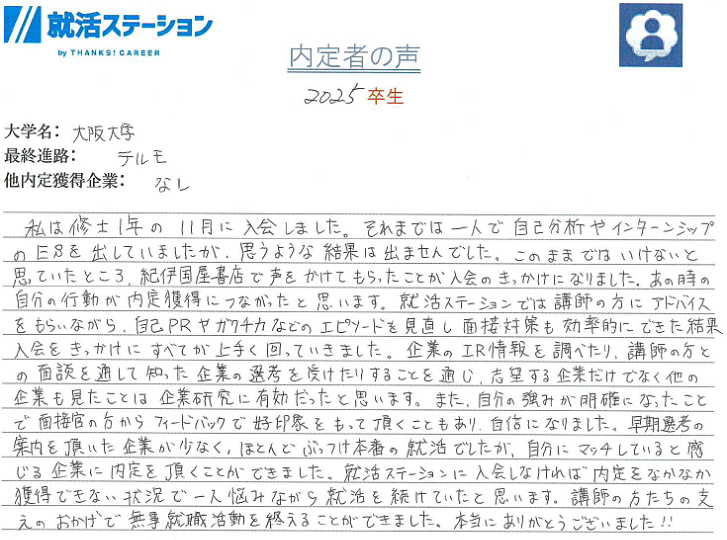 就活ステーション
by THANKS! CAREER
内定者の声
2025 卒生
大学名： 大阪大学
最終進路： テルモ
他内定獲得企業： なし
私は修士1年の11月に入会しました。それまでは一人で自己分析やインターンシップ
のESを出していましたが、思うような結果は出ませんでした。このままではいけないと
思っていたところ、紀伊国屋書店で声をかけてもらったことが入会のきっかけになりました。あの時の
自分の行動が内定獲得につながったと思います。就活ステーションでは講師の方にアドバイス
をもらいながら、自己PRやガクチカなどのエピソードを見直し面接対策も効率的にできた結果
入会をきっかけにすべてが上手く回っていきました。企業のIR情報を調べたり、講師の方と
の面談を通して知った企業の選考を受けたりすることを通じ、志望する企業だけでなく他の
企業も見たことは企業研究に有効だったと思います。また、自分の強みが明確になったこと
で面接官の方からフィードバックで好印象をもって頂くこともあり、自信になりました。早期選考の
案内を頂いた企業が少なく、ほとんどぶっつけ本番の就活でしたが、自分にマッチしていると感
じる企業に内定を頂くことができました。就活ステーションに入会しなければ内定をなかなか
獲得できない状況で一人悩みながら就活を続けていたと思います。講師の方たちの支
えのおかげで無事就職活動を終えることができました。本当にありがとうございました!!